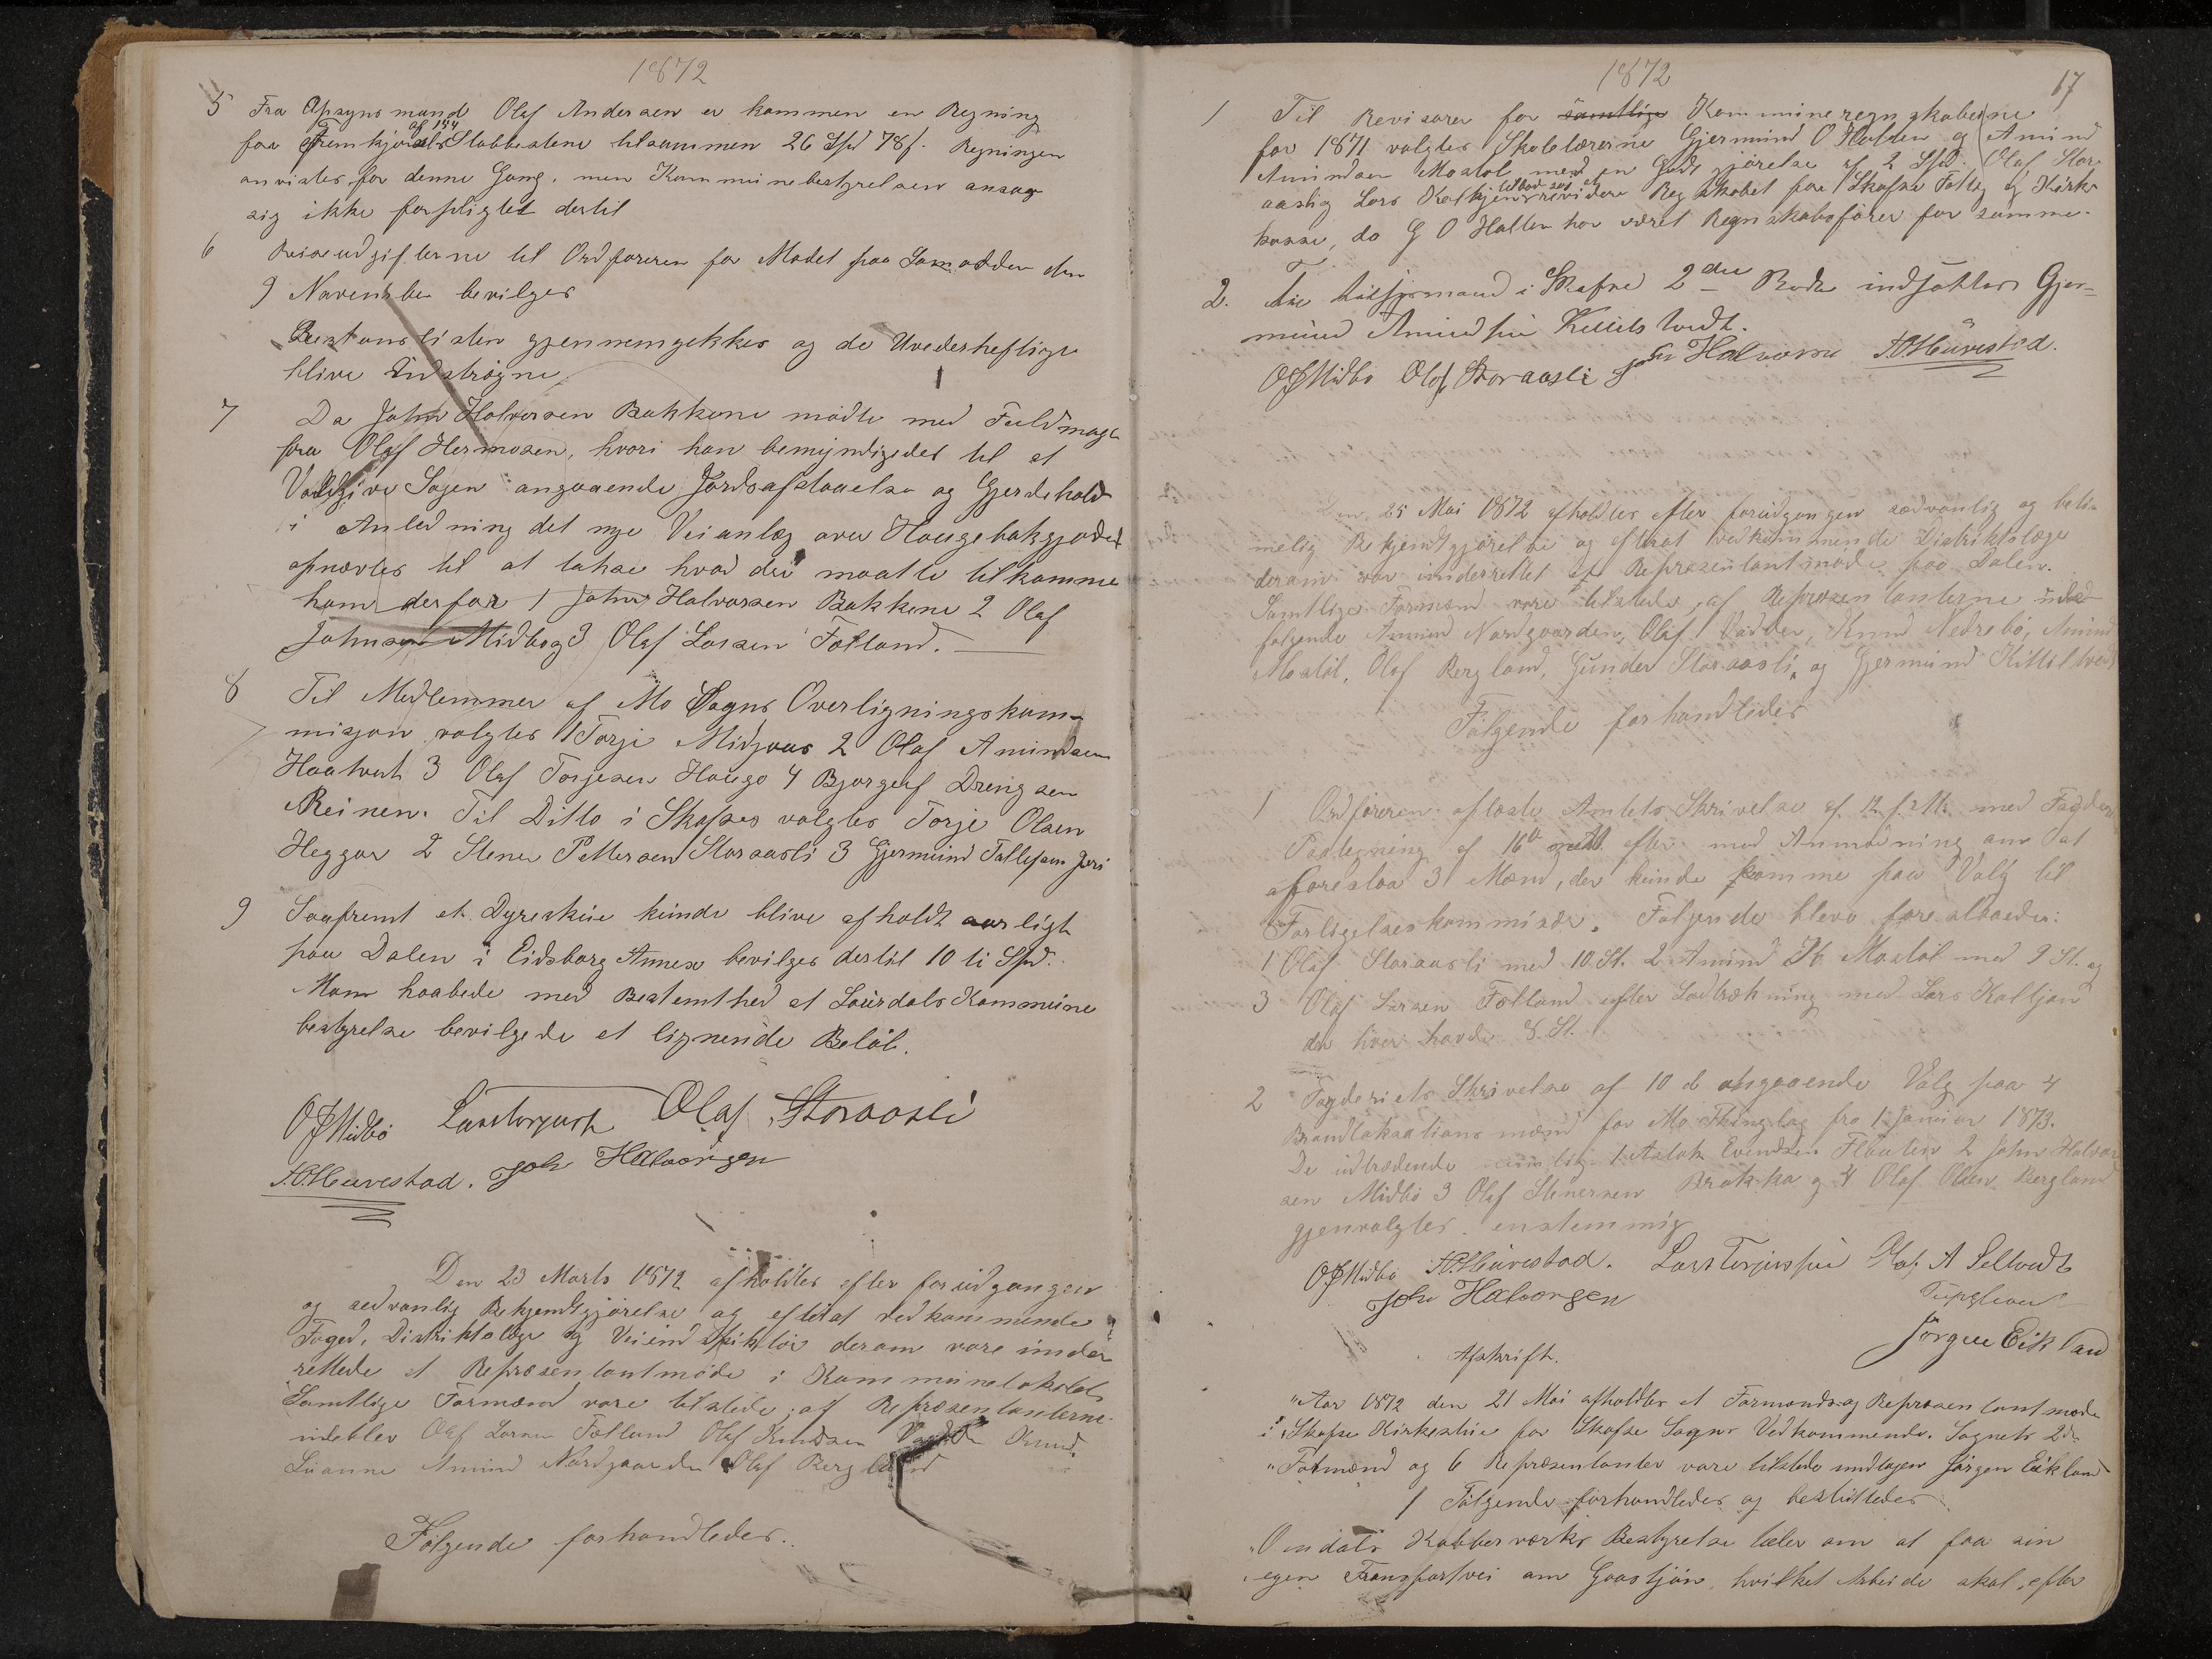 1872
5 Fra Opsynsmand Olaf Andersen er kommen en Regning
for Fremkjørsel af 154 Stabbestene tilsammen 26 Spd 78 s. Regningen
anvistes for denne Gang, men Kommunebestyrelsen ansaa
sig ikke forpligtet dertil
6 Reiseudgifterne til Ordføreren for Mødet paa den
9 November bevilges
Restanslisten gjennemgikkes og de Uvederheftige
blive Udstrøgne
7 Da John Halvorsen Bakkene mødte med Fuldmagt
fra Olaf Hermosen, hvori han bemyndigedes til at
Voldgive Sagen angaaende Jordsafstaaelse og Gjerdehold
i Anledning det nye Veianlæg over Haugebakgjødet
opnævntes til at taksere hvad der maatte tilkomme
ham derfor 1 John Halvorsen Bakkene 2 Olaf
Johnsen Midbø og 3 Olaf Larsen Fotland.
8 Til Medlemmer af Mo Sogns Overligningskom-
misjon valgtes 1 Torje Midgaar 2 Olaf Amundsen
Haatveit 3 Olaf Torjesen Haugo 4 Bjørgulf Drengsen
Reinen. Til Ditto i Skafse valgtes Torje Olsen
Heggor 2 Stener Pettersen Storaasli 3 Gjermund Tallefsen
9 Saafremt et Dyreskue kunde blive afholdt aarligt
paa Dalen i Eidsborg Annex bevilges dertil 10 ti Spd.
Man haabede med Bestemthed at Laurdals Kommune
bestyrelse bevilgede et lignende Beløb.
O J Midbø Lars Torjussen Olaf Storaasli
A O Haavestad. Joh Halvorsen
Den 23 Marts 1872 afholdtes efter forudgangen
og sedvanlig Bekjendtgjørelse og efterat vedkommende
Foged, Distriktslæge og Veiinspektør derom vare under
rettede et Repræsentantmøde i Kommunelokalet
Samtlige Formænd vare tilstede; af Repræsentanterne
udeblev Olaf Larsen Fotland Olaf Knudsen Vadder Knud
Amund Nordgaarden Olaf Bergland
Følgende forhandledes.
1872
17
1 Til Revisorer for samtlige Kommuneregnskaberne
for 1871 valgtes Skolelærerne Gjermund O Halsen og Amund
Amundsen Mostøl med en Godtgjørelse af 2 Spd. Olaf Stor-
aaslig Lars Kaltjøn tilbød sig at revidere Regnskabet for Skafse Fattig og Kirke
kasse, da G O Halsen har været Regnskabsfører for samme.
2. Til i Skafse 2den Rode indsattes Gjer-
mund Amundsen Kittelstvedt.
O J Midbø Olaf Storaasli Joh Halvorsen A O Haavestad.
Den 25 Mai 1872 afholdtes efter forudgangen sædvanlig og beti-
melig Bekjendtgjørelse og efterat vedkommende Distriktslæge
derom var underrettet et Repræsentantmøde paa Dalen.
Samtlige Formænd vare tilstede, af Repræsentanterne
følgende Amund Nordgaarden, Olaf Vadder, Knud Nedrebø, Amund
Mostøl, Olaf Bergland, Gunder Storaasli, og Gjermund Kittilstved
Følgende forhandledes
1 Ordføreren oplæste Amtets Skrivelse af 12 f. Mt. med Fogdens
Paategning af 16de med Anmodning om at
foreslaa 3 Mænd, der kunde komme paa Valg til
Forligelseskommisær. Følgende bleve foreslaaede:
1 Olaf Storaasli med 10 St. 2 Amund Mostøl med 9 St. og
3 Olaf Larsen Fotland efter Lodtrækning med Lars Kaltjøn
der hver havde 8 St.
2 Fogderiets Skrivelse af 10 d angaaende Valg paa 4
Brandtaksationsmænd for Mo Thinglag fra 1 Januar 1873.
De udtrædende nemlig 1 Aslak Evendsen Flauten 2 John Halvor
sen Midbø 3 Olaf Stenersen Brokka og 4 Olaf Olsen Bergland
gjenvalgtes enstemmig
O J Midbø A O Haavestad. Lars Torjussen Olaf A Seltvedt
Joh Halvorsen
Jörgen Eikland
Afskrift.
"Aar 1872 den 21 Mai afholdtes et Formands- og Repræsentantmøde
i Skafse Kirkestue for Skafse Sogns Vedkommende. Sognets 2de
"Formænd og 6 Repræsentanter vare tilstede undtagen Jørgen Eikland
1 Følgende forhandledes og besluttedes
"Omdals Kobberværks Bestyrelse taler om at faa sin
egen Transportvei om Gaastjøn, hvilket Arbeide skal, efter